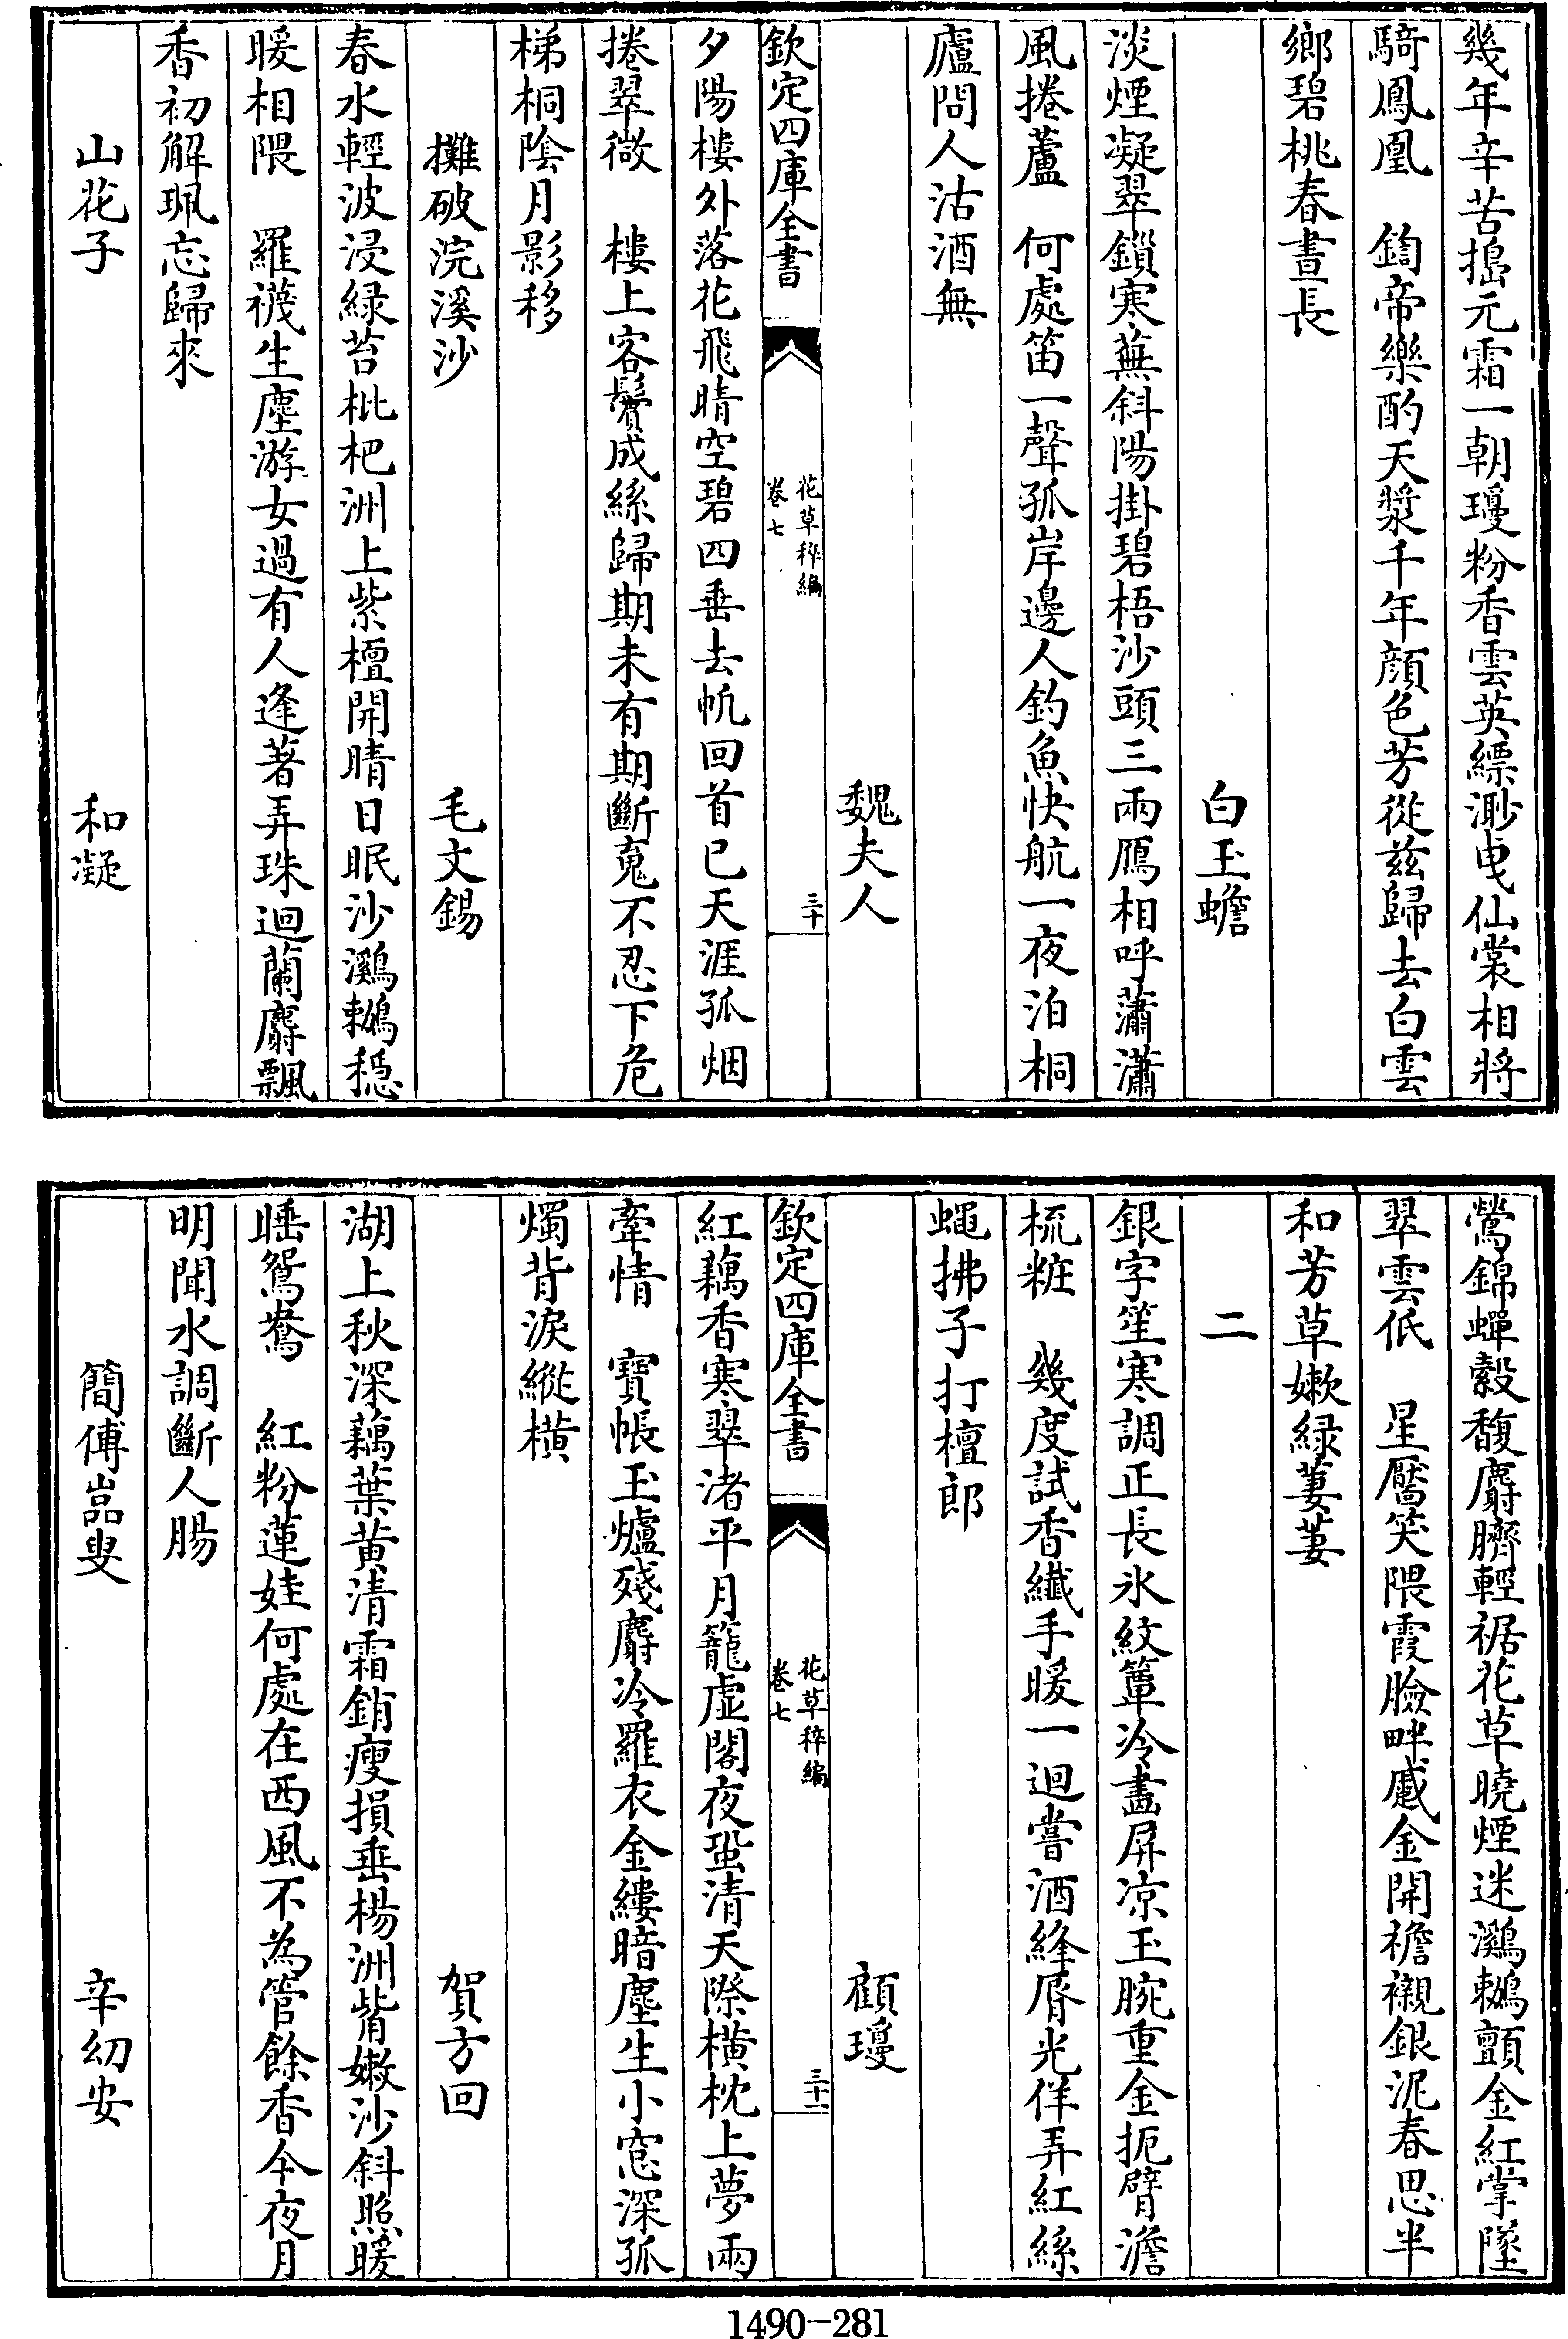 幾年辛苦搗元霜一朝瓊粉香雲英縹渺曳仙裳相將
騎鳳凰　鈞帝樂酌天漿千年顔色芳從兹歸去白雲
鄉碧桃春晝長
白玉蟾
淡煙凝翠鎖寒蕪斜陽掛碧梧沙頭三兩鴈相呼蕭瀟
風捲蘆　何處笛一聲孤岸邊人釣魚快航一夜泊桐
廬問人沽酒無
魏夫人
欽定四庫全書
花草稡編
卷七
三十
夕陽樓外落花飛晴空碧四垂去帆回首已天涯孤烟
捲翠微　樓上客鬢成絲歸期未有期斷䰟不忍下危
梯桐陰月影移
攤破浣溪沙　毛文錫
春水輕波浸緑苔枇杷洲上紫檀開晴日眠沙鸂鶒穏
暖相隈　羅襪生塵游女過有人逢著弄珠迴蘭麝飄
香初解珮忘歸來
山花子　和凝
鶯錦蟬縠馥麝臍輕裾花草曉煙迷鸂鶒顫金紅掌墜
翠雲低　星靨笑隈霞臉畔蹙金開襜襯銀泥春思半
和芳草嫩緑萋萋
二
銀字笙寒調正長氷紋簟冷畫屏凉玉腕重金扼臂澹
梳粧　幾度試香纖手暖一迴嘗酒絳脣光佯弄紅絲
蠅拂子打檀郎
顧瓊
欽定四庫全書
花草稡編
卷七
三十一
紅藕香寒翠渚平月籠虛閣夜蛩清天際横枕上夢兩
牽情　寶帳玉爐殘麝冷羅衣金縷暗塵生小窓深孤
燭背淚縱横
賀方回
湖上秋深藕葉黄清霜銷瘦損垂楊洲觜嫩沙斜照暖
睡鴛鴦　紅粉蓮娃何處在西風不為管餘香今夜月
明聞水調斷人腸
簡傅嵓叟　辛幼安
1490-281